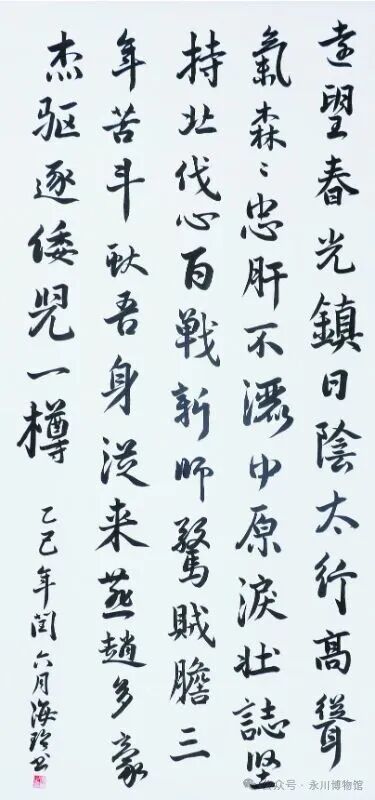 遠望春光鎮日陰太行高聳
氣森〻忠肝不灑中原淚壯誌坚
持北伐心百戦新師驚賊膽三
年苦斗献吾身従来燕趙多豪
杰驱逐倭児一樽
乙巳年闰六月海玲书
公众号·永川博物馆